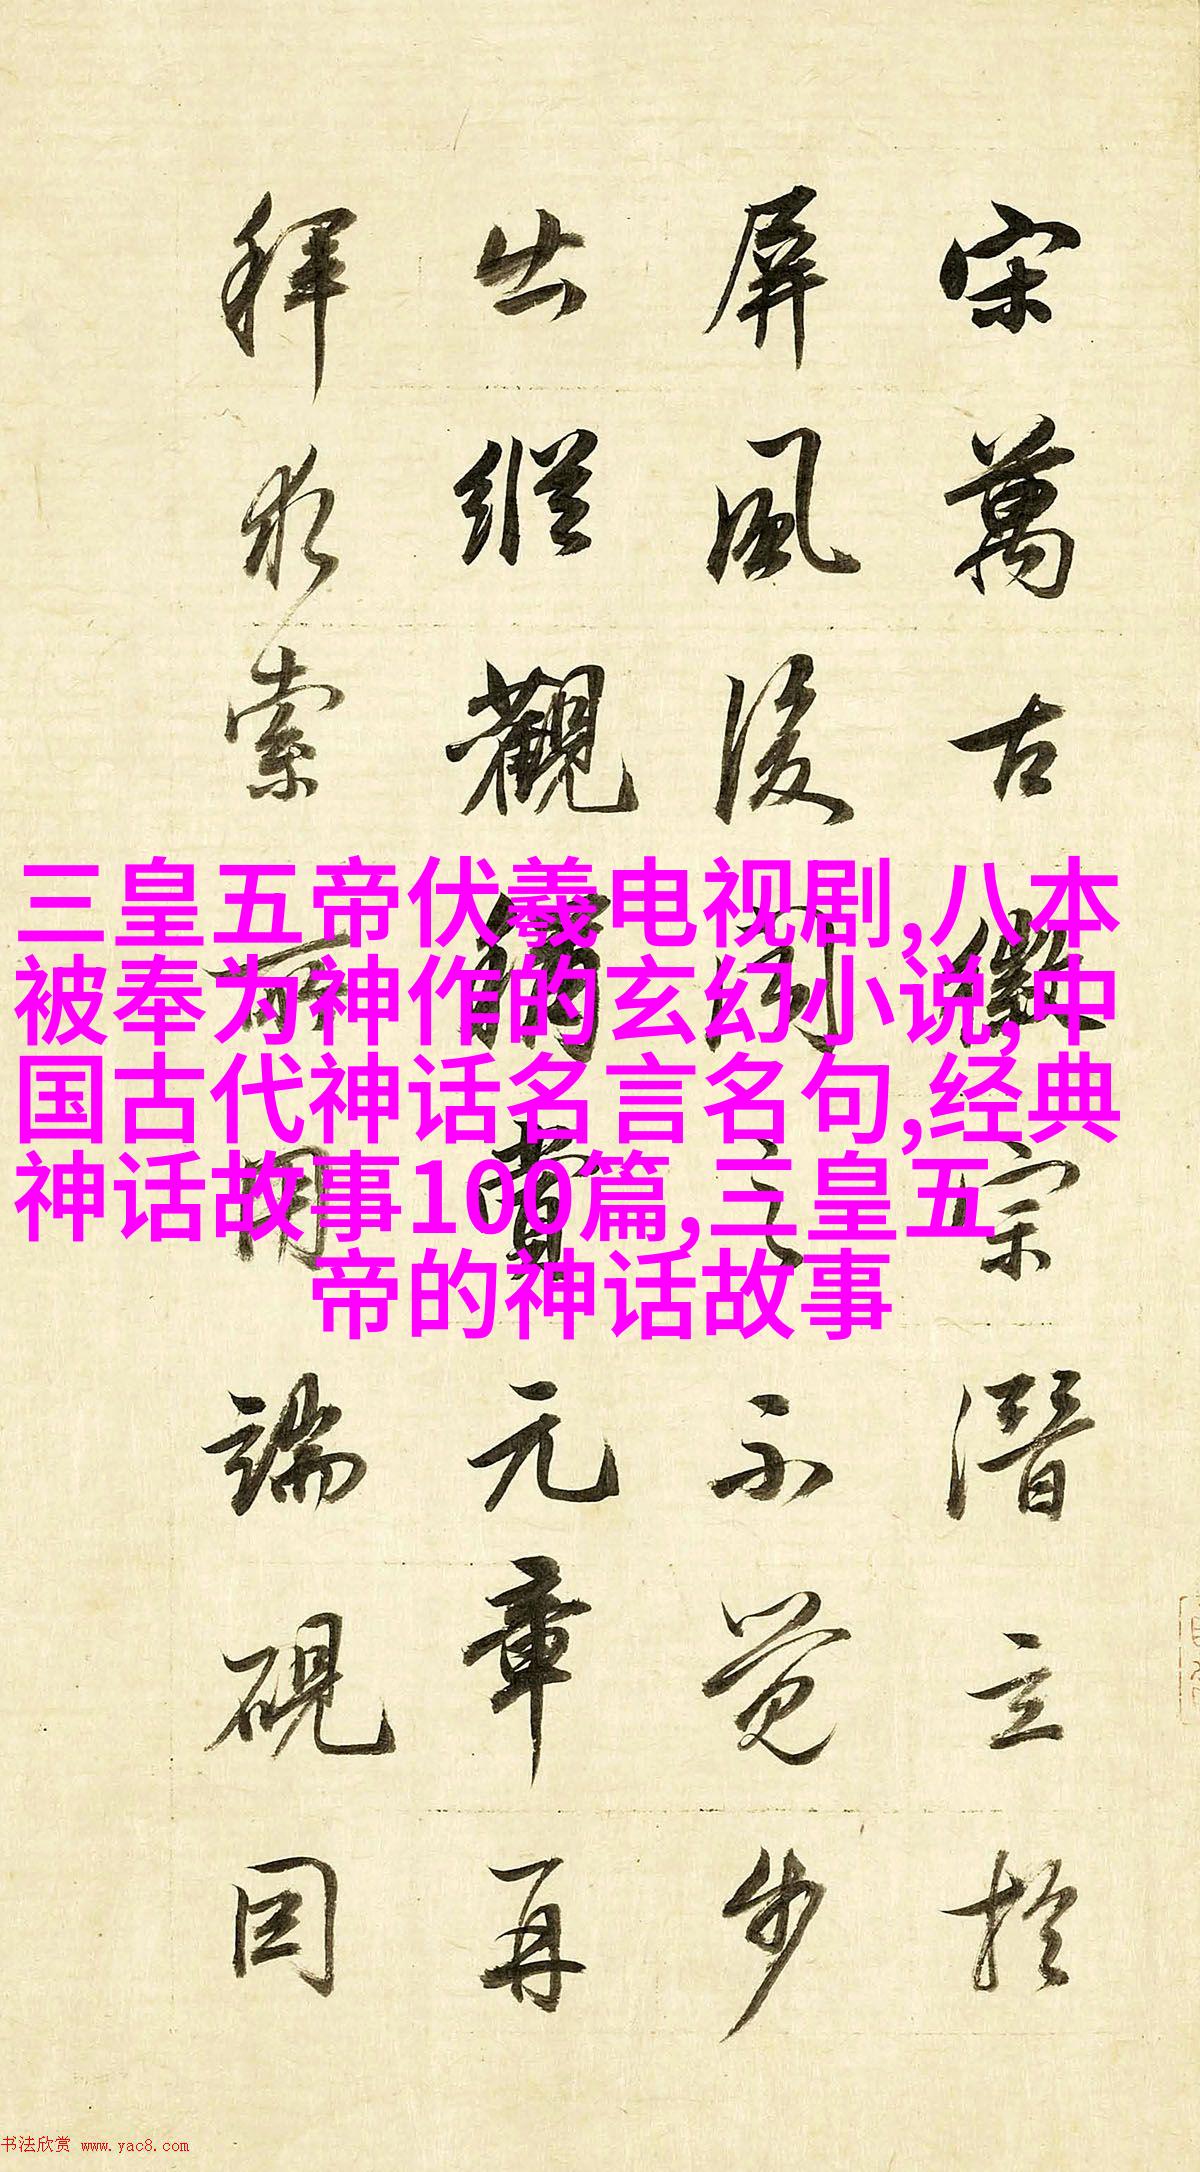 宋萬古徽宗潛立於
屏風後聞之不覺步
出縱觀稱賞元章再
拜求索所用端硯因
三皇五帝伏羲电视剧,八本
被奉为神作的玄幻小说,中
国古代神话名言名句,经典
神话故事100篇,三皇五
帝的神话故事
书法欣赏 www.yac8.com